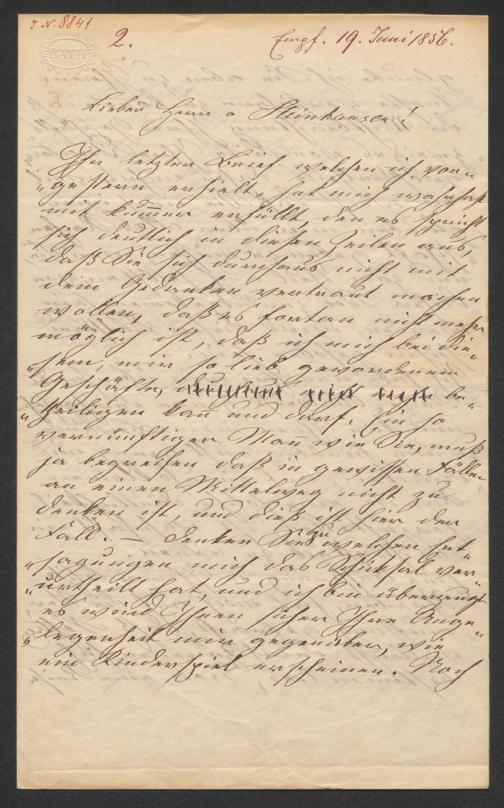 J.N. 8841
2.
Empf. 19. Juni 1856.
BATH
Lieber Herr v Steinhauser!
Ihr letzter Brief welchen ich vor=
"gestern erhielt, hat mich wahrhaft
mit Kummer erfüllt, den es spricht
sich deutlich in diesen Zeilen aus,
daß Sie sich durchaus nicht mit
dem Gedanken vertraut machen
wollen, daß es fortan nicht mehr
möglich ist, daß ich mich bei die=
"sem, mir so lieb gewordenen
Geschäfte, be=
"theiligen kañ und darf. Ein so
vernünftiger Mañ wie Sie, muß
ja begreifen daß in gewissen Fällen
an einen Mittelweg nicht zu
denken ist, und dieß ist hier der
Fall. — Denken Sie zu welchen Ent=
"sagungen mich das Schicksal ver=
"urtheilt hat, und ich bin überzeugt
es wird Ihnen sicher Ihre Ange=
"legenheit mir gegenüber, wie
ein Kinderspiel erscheinen. Noch